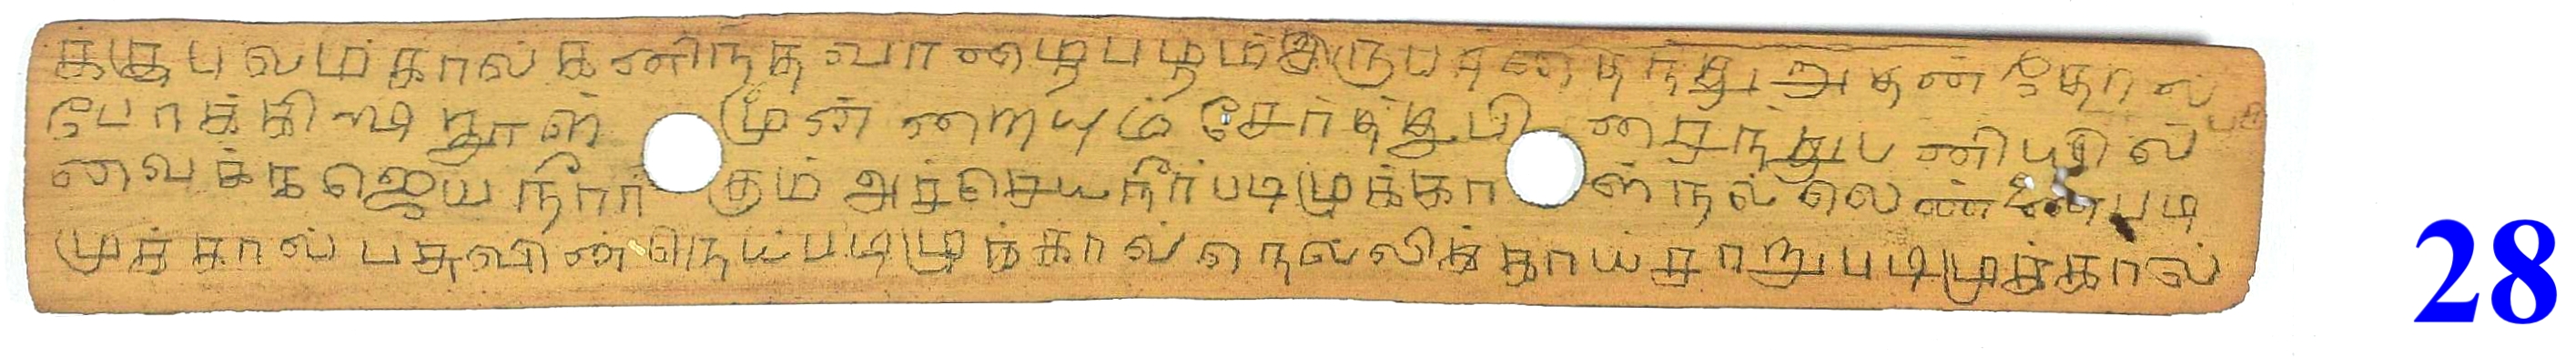 க்கு பலம் கால் கனிந்த வாழைபழம் இருபத னைந்து அதன் தோல்
போக்கி நாள் மூன்றையும் சேர்த்து பிசைந்து பனியில்
வைக்க ஜெயநீராகும் அந்த செயநீர் படி முக்கால் நல்லெண்ணை படி
முக்கால் பசுவின் நெய் படி முக்கால் நெல்லிக்காய் சாறு படி முக்கால்
28